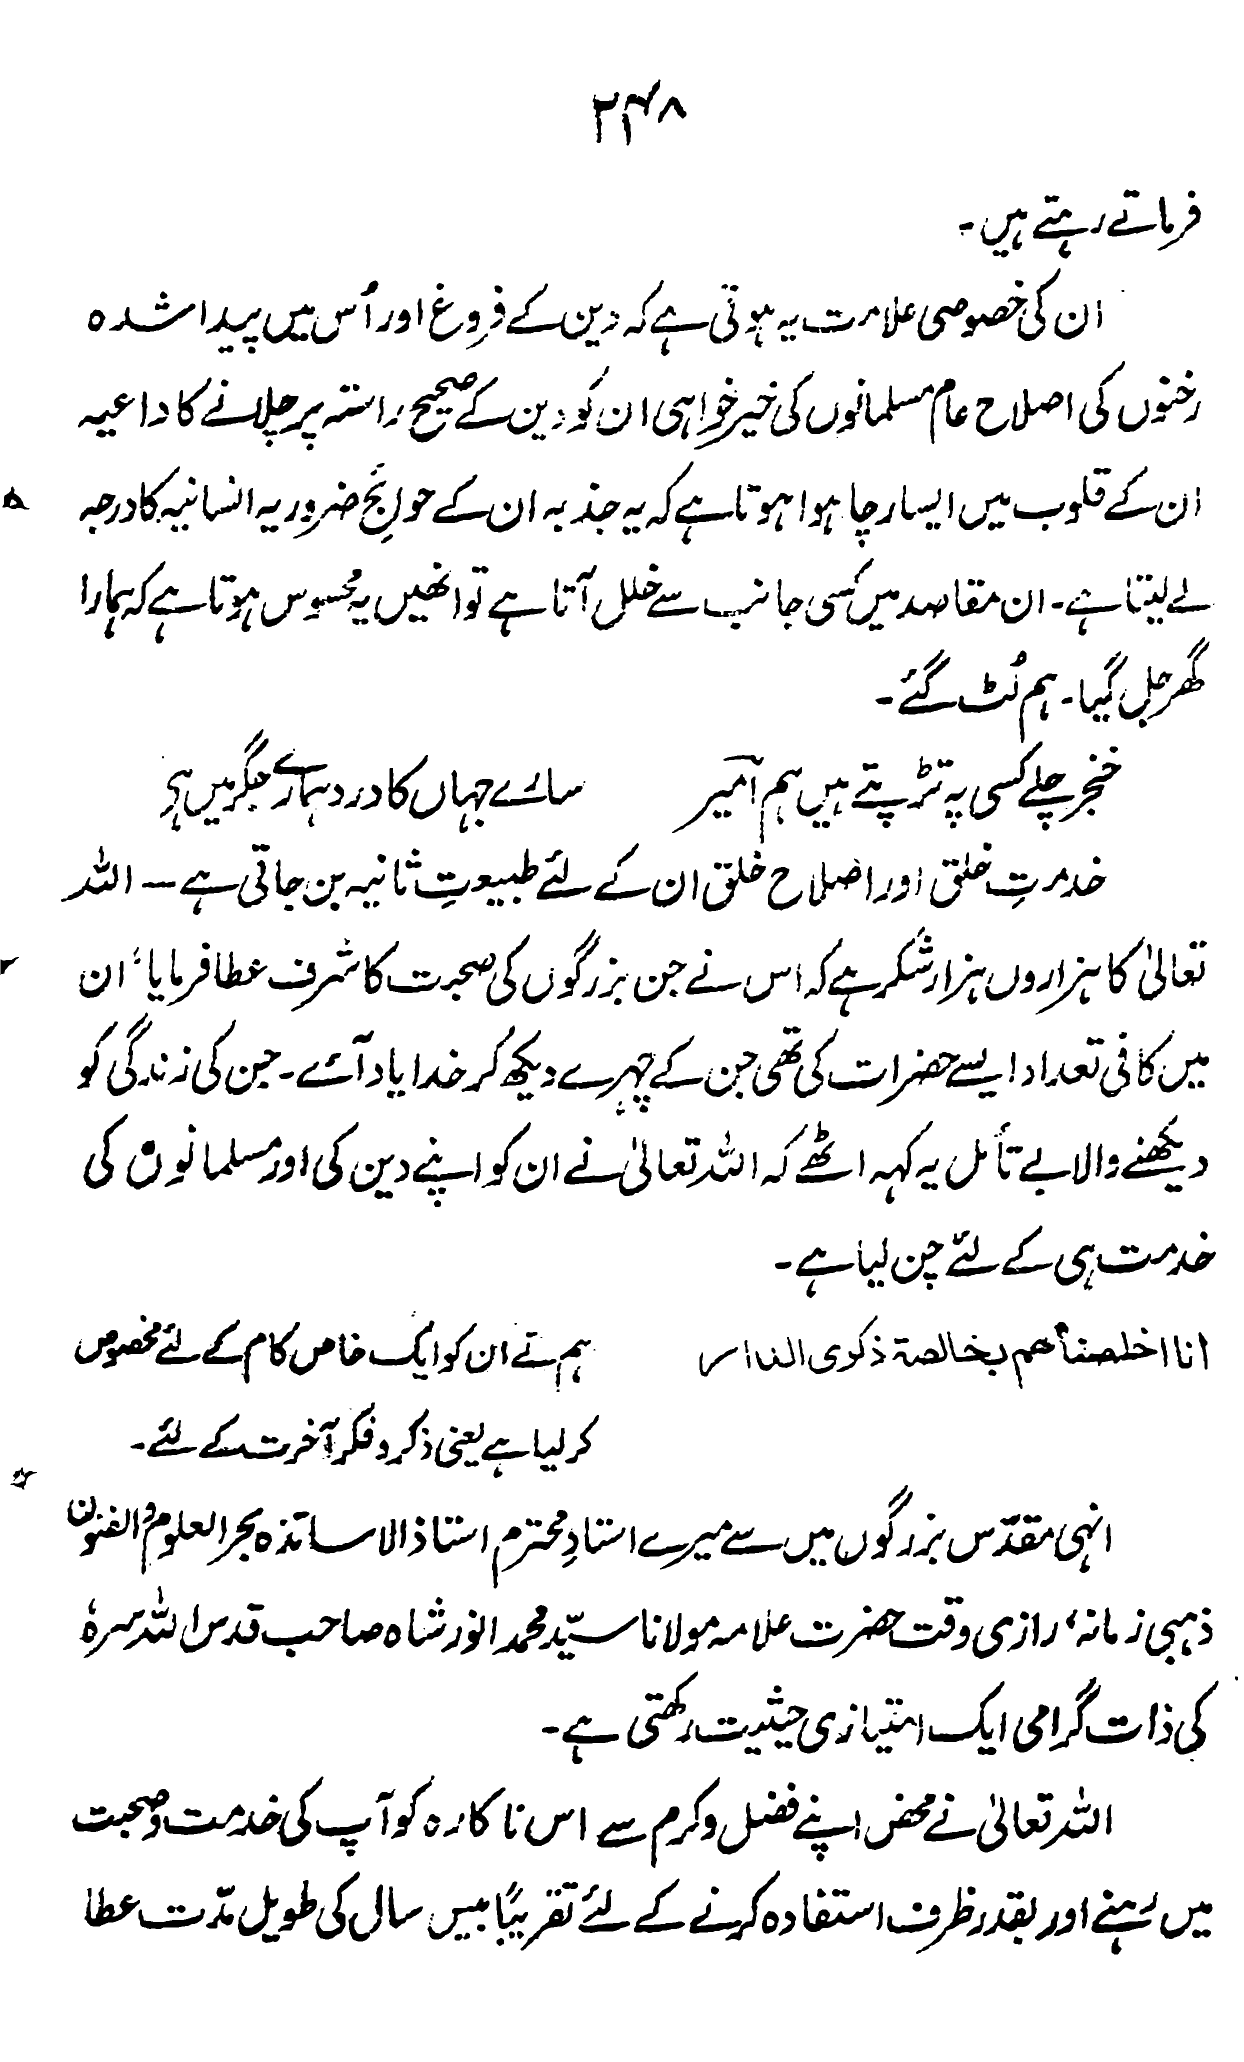 ۲۴۸
فرماتے رہتے ہیں۔
ان کی خصوصی علامت یہ ہوتی ہے کہ دین کے فروغ اور اُس میں پیدا شدہ
رخنوں کی اصلاح عام مسلمانوں کی خیر خواہی ان کو دین کے صحیح راستہ پر چلانے کا داعیہ
ان کے قلوب میں ایسا رچا ہوا ہوتا ہے کہ یہ جذبہ ان کے حوائج ضروریہ انسانیہ کا درجہ
لے لیتا ہے۔ ان مقاصد میں کسی جانب سے خلل آتا ہے تو انھیں یہ محسوس ہوتا ہے کہ ہمارا
گھر جل گیا۔ ہم لُٹ گئے۔
خنجر چلے کسی پہ تڑپتے ہیں ہم امیر سارے جہاں کا درد ہمارے جگر میں ہے
خدمتِ خلق اور اصلاح خلق ان کے لئے طبیعتِ ثانیہ بن جاتی ہے — اللہ
تعالیٰ کا ہزاروں ہزار شکر ہے کہ اس نے جن بزرگوں کی صحبت کا شرف عطا فرمایا، ان
میں کافی تعداد ایسے حضرات کی تھی جن کے چہرے دیکھ کر خدا یاد آئے۔ جن کی زندگی کو
دیکھنے والا بے تأمل یہ کہہ اٹھے کہ اللہ تعالیٰ نے ان کو اپنے دین کی اور مسلمانوں کی
خدمت ہی کے لئے چن لیا ہے۔
انا اخلصناھم بخالصۃ ذکری الدار ہم نے ان کو ایک خاص کام کے لئے مخصوص
کر لیا ہے یعنی ذکر و فکر آخرت کے لئے۔
انہی مقدّس بزرگوں میں سے میرے استادِ محترم استاذ الاساتذہ بحر العلوم والفنون
ذہبی زمانہ، رازی وقت حضرت علامہ مولانا سیّد محمد انور شاہ صاحب قدس اللہ سرہٗ
کی ذات گرامی ایک امتیازی حیثیت رکھتی ہے۔
اللہ تعالیٰ نے محض اپنے فضل و کرم سے اس ناکارہ کو آپ کی خدمت و صحبت
میں رہنے اور بقدر ظرف استفادہ کرنے کے لئے تقریبًا بیس سال کی طویل مدّت عطا